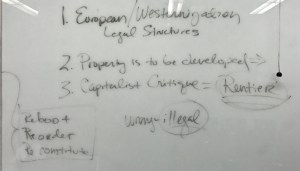 1. European/Westernization
Legal Structures
2. Property is to be developed =>
3. Capitalist Critique = Rentiere
wrong - illegal
Reboot
Reorder
Reconstitute